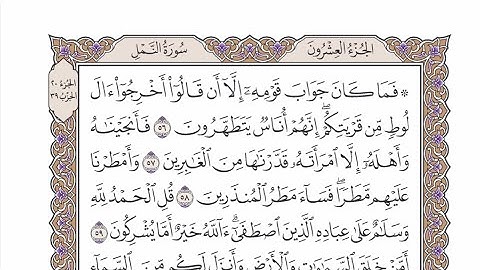 الجُزْءُ العِشْرُونَ
سُورَةُ النَّمْلِ
الجُزْءُ ٢٠
الحِزْبُ ٣٩
۞ فَمَا كَانَ جَوَابَ قَوْمِهِۦٓ إِلَّآ أَن قَالُوٓا۟ أَخْرِجُوٓا۟ ءَالَ
لُوطٍ مِّن قَرْيَتِكُمْ ۖ إِنَّهُمْ أُنَاسٌ يَتَطَهَّرُونَ ٥٦ فَأَنجَيْنَٰهُ
وَأَهْلَهُۥٓ إِلَّا ٱمْرَأَتَهُۥ قَدَّرْنَٰهَا مِنَ ٱلْغَٰبِرِينَ ٥٧ وَأَمْطَرْنَا
عَلَيْهِم مَّطَرًا ۖ فَسَآءَ مَطَرُ ٱلْمُنذَرِينَ ٥٨ قُلِ ٱلْحَمْدُ لِلَّهِ
وَسَلَٰمٌ عَلَىٰ عِبَادِهِ ٱلَّذِينَ ٱصْطَفَىٰٓ ۗ ءَآللَّهُ خَيْرٌ أَمَّا يُشْرِكُونَ ٥٩
أَمَّنْ خَلَقَ ٱلسَّمَٰوَٰتِ وَٱلْأَرْضَ وَأَنزَلَ لَكُم مِّنَ ٱلسَّمَآءِ